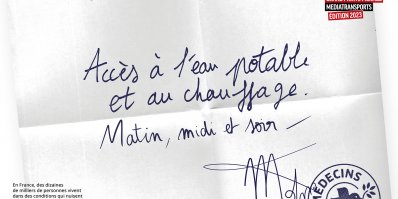 MEDIATRANSPORTS
ÉDITION 2023
Accès à l'eau potable
et au chauffage.
Matin, midi et soir –
MÉDECINS
En France, des dizaines
de milliers de personnes vivent
dans des conditions qui nuisent